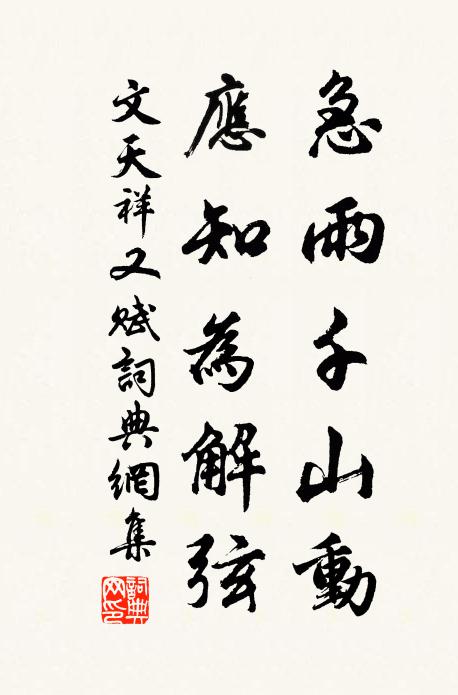 急雨千山動
應知為解弦
文天祥又賦詞典網集
詞典網印